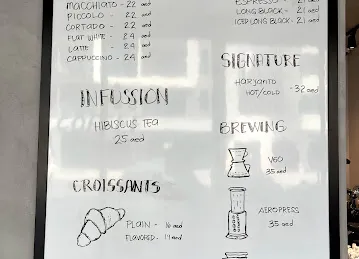 MACCHIATO - 22 aed
PICCOLO - 22 aed
CORTADO - 22 aed
FLAT WHITE - 24 aed
LATTE - 24 aed
CAPPUCCINO - 24 aed
INFUSSION
HIBISCUS TEA
25 aed
CROISSANTS
PLAIN - 16 aed
FLAVORED - 19 aed
ESPRESSO - 21 aed
LONG BLACK - 21 aed
ICED LONG BLACK - 21 aed
SIGNATURE
HARYANTO
HOT/COLD - 32 aed
BREWING
V60
35 aed
AEROPRESS
35 aed